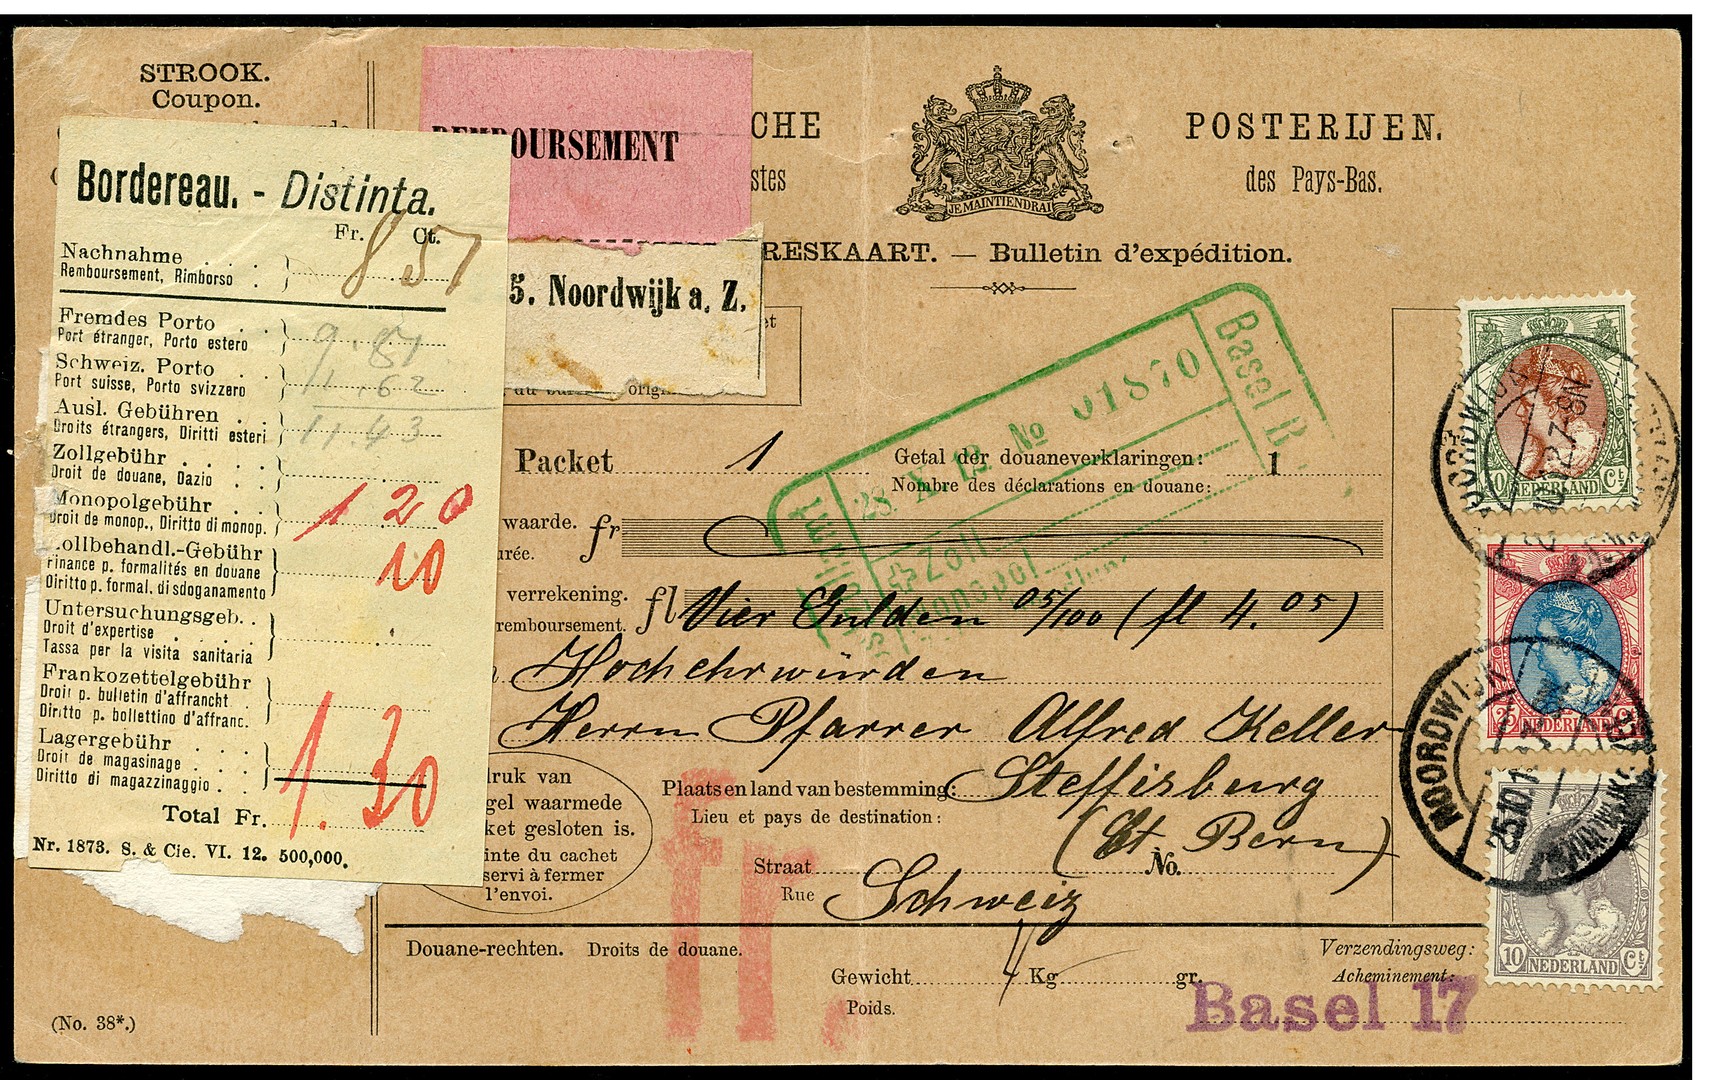 STROOK.
Coupon.
REMBOURSEMENT
CHE
stes
JE MAINTIENDRAI
POSTERIJEN.
des Pays-Bas.
RESKAART. — Bulletin d'expédition.
5. Noordwijk a. Z.
et
du bureau d'orig
Bordereau. - Distinta.
Fr. Ct.
Nachnahme . . .
Remboursement, Rimborso .
8 57
Fremdes Porto . .
Port étranger, Porto estero
Schweiz. Porto . .
Port suisse, Porto svizzero
Ausl. Gebühren . .
Droits étrangers, Diritti esteri
11.43
Zollgebühr . . . .
Droit de douane, Dazio .
Monopolgebühr .
Droit de monop., Diritto di monop.
1 20
Zollbehandl.-Gebühr
Finance p. formalités en douane
Diritto p. formal. di sdoganamento
10
Untersuchungsgeb. .
Droit d'expertise . . . .
Tassa per la visita sanitaria
Frankozettelgebühr
Droit p. bulletin d'affrancht .
Diritto p. bollettino d'affranc.
Lagergebühr . . .
Droit de magasinage . . .
Diritto di magazzinaggio . .
Total Fr.
1.30
Nr. 1873. S. & Cie. VI. 12. 500,000.
Packet 1
Getal der douaneverklaringen: 1
Nombre des déclarations en douane:
28. X. 12. No 01870
Basel
Zoll
Monopol
waarde. fr
urée.
verrekening. fl Vier Gulden 05/100 (fl 4.05)
remboursement.
Hochehrwürden
Herrn Pfarrer Alfred Keller
druk van
gel waarmede
ket gesloten is.
inte du cachet
servi à fermer
l'envoi.
Plaats en land van bestemming: Steffisburg
Lieu et pays de destination:
(Ct. Bern)
Straat No.
Rue
Schweiz
Douane-rechten. Droits de douane.
Verzendingsweg:
Gewicht Kg gr. Acheminement:
Poids.
fr.
Basel 17
(No. 38*.)
NOORDWIJK
NEDERLAND Ct
25 NEDERLAND Ct
NOORDWIJK
25.10.1
10 NEDERLAND Ct